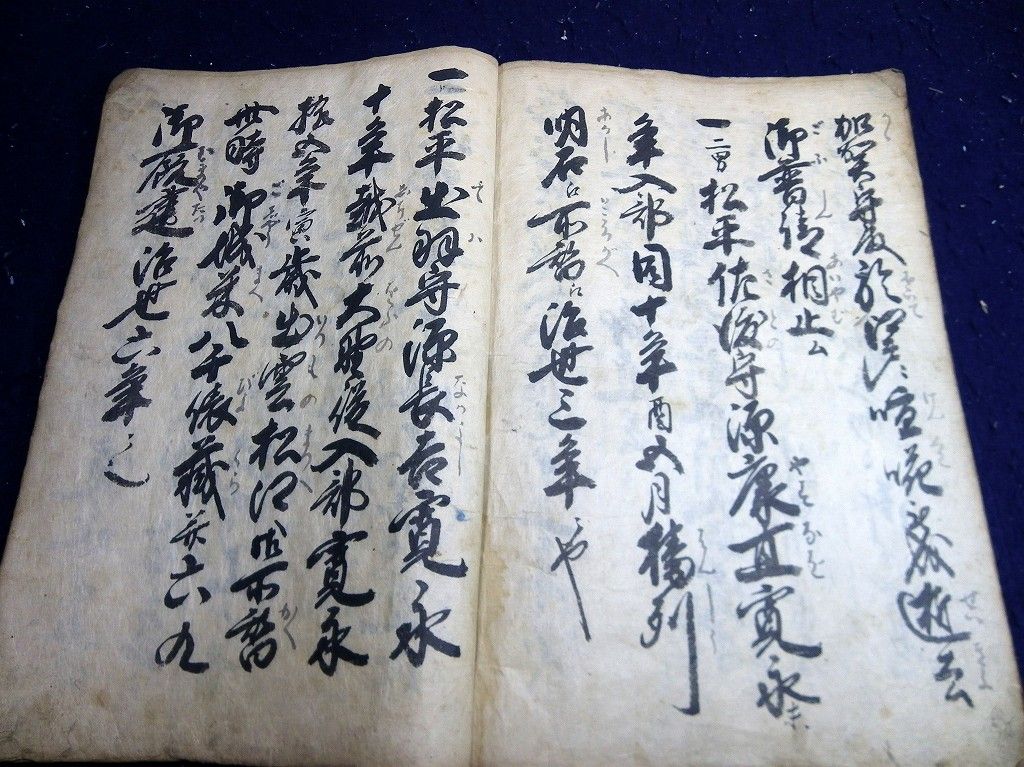 加賀守殿於 喧 逝去
御普請相止ム
一 松平佐渡守源康直寛永
年入部同十年酉五月播州
明石江所替江治世三年也
一松平出羽守源長吉寛永
十年越前大野従入部寛永
拾五年寅歳出雲松江江所替
此時御城米八千俵蔵并六九
御厩建治世六年也